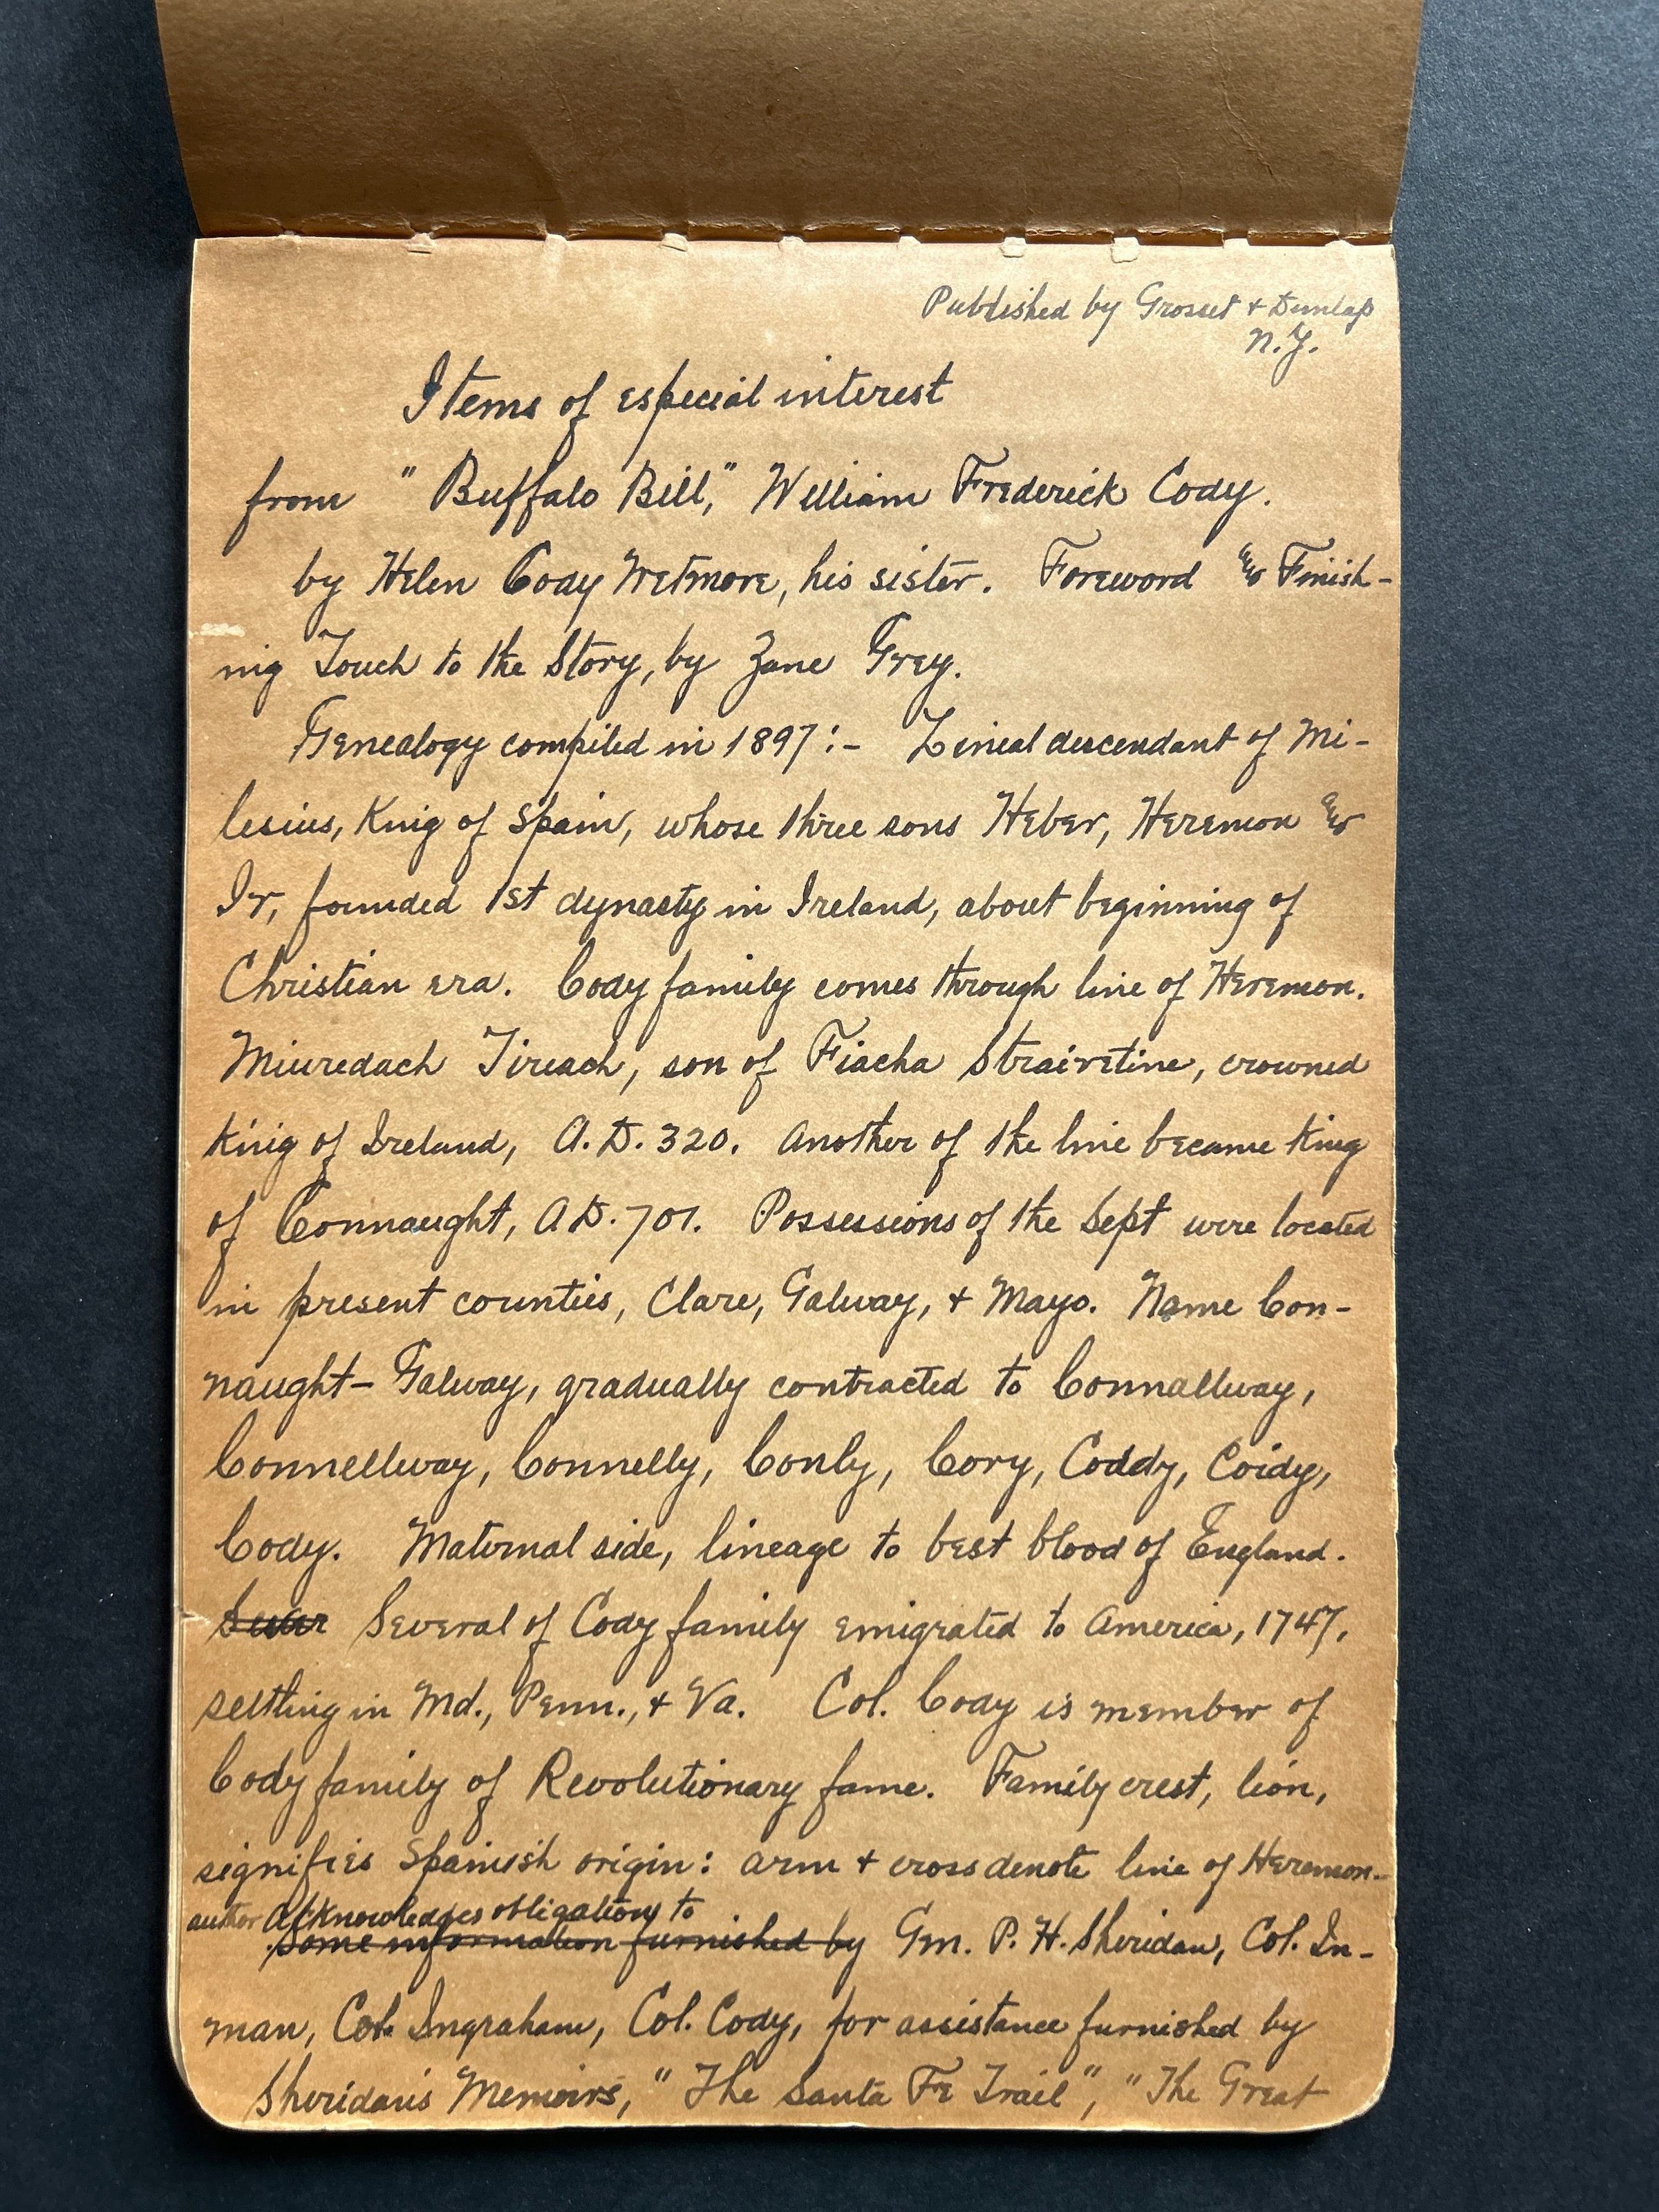 Published by Grosset + Dunlap
N.Y.
Items of especial interest
from "Buffalo Bill," William Frederick Cody.
by Helen Cody Wetmore, his sister. Foreword & Finish-
ing Touch to the Story, by Zane Grey.
Genealogy compiled in 1897:- Lineal descendant of Mi-
lesius, King of Spain, whose three sons Heber, Heremon &
Ir, founded 1st dynasty in Ireland, about beginning of
Christian era. Cody family comes through line of Heremon.
Miuredach Tireach, son of Fiacha Straivetine, crowned
King of Ireland, A.D. 320. Another of the line became King
of Connaught, A.D. 701. Possessions of the Sept were located
in present counties, Clare, Galway, + Mayo. Name Con-
naught-Galway, gradually contracted to Connallway,
Connellway, Connelly, Conly, Cory, Coddy, Coidy,
Cody. Maternal side, lineage to best blood of England.
Several of Cody family emigrated to America, 1747,
settling in Md., Penn., + Va. Col. Cody is member of
Cody family of Revolutionary fame. Family crest, lion,
signifies Spanish origin: arm + cross denote line of Heremon.
author acknowledges obligations to
some information furnished by Gen. P. H. Sheridan, Col. In-
man, Col. Ingraham, Col. Cody, for assistance furnished by
Sheridan's Memoirs, "The Santa Fe Trail", "The Great